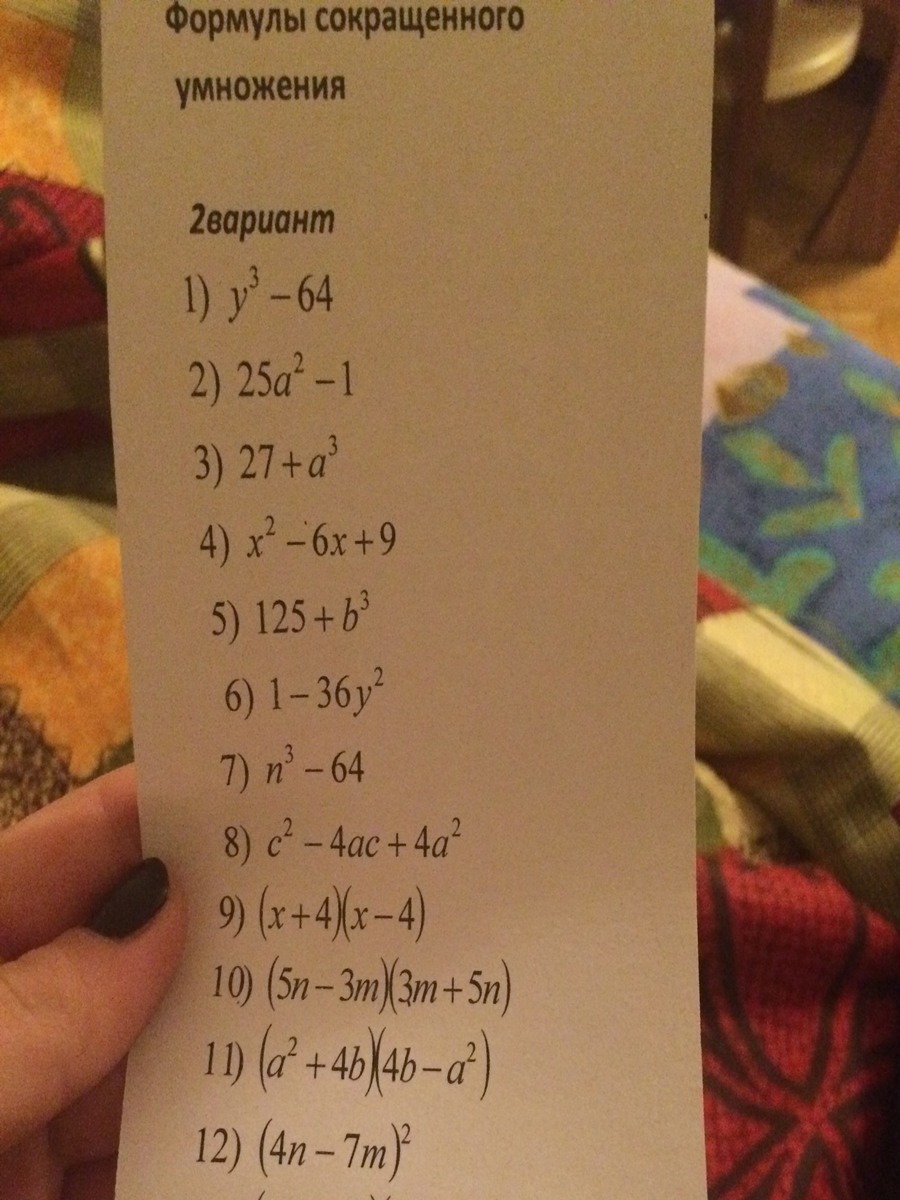 Формулы сокращенного
умножения
2вариант
1) y³ – 64
2) 25a² – 1
3) 27 + a³
4) x² – 6x + 9
5) 125 + b³
6) 1 – 36y²
7) n³ – 64
8) c² – 4ac + 4a²
9) (x + 4)(x – 4)
10) (5n – 3m)(3m + 5n)
11) (a² + 4b)(4b – a²)
12) (4n – 7m)²